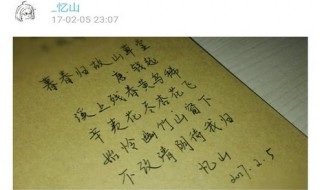 _忆山
17-02-05 23:07
暮春归故山草堂
唐·钱起
溪上残春黄鸟稀
辛夷花尽杏花飞
始怜幽竹山窗下
不改清阴待我归
忆山
2017.2.5